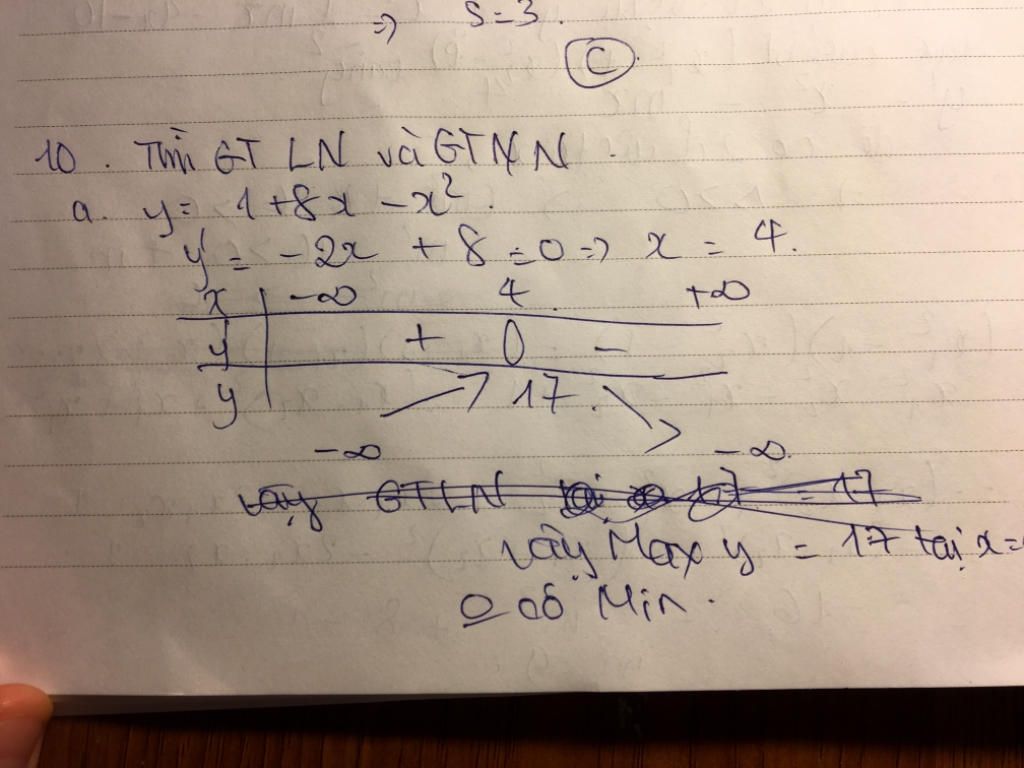 => S = 3.
C
10. Tìm GTLN và GTNN.
a. y = 1 + 8x - x².
y' = -2x + 8 = 0 => x = 4.
x | -∞ 4 +∞
y' | + 0 -
y | 17.
-∞ -∞.
vậy GTLN = 17
vậy Max y = 17 tại x =
0 có Min.